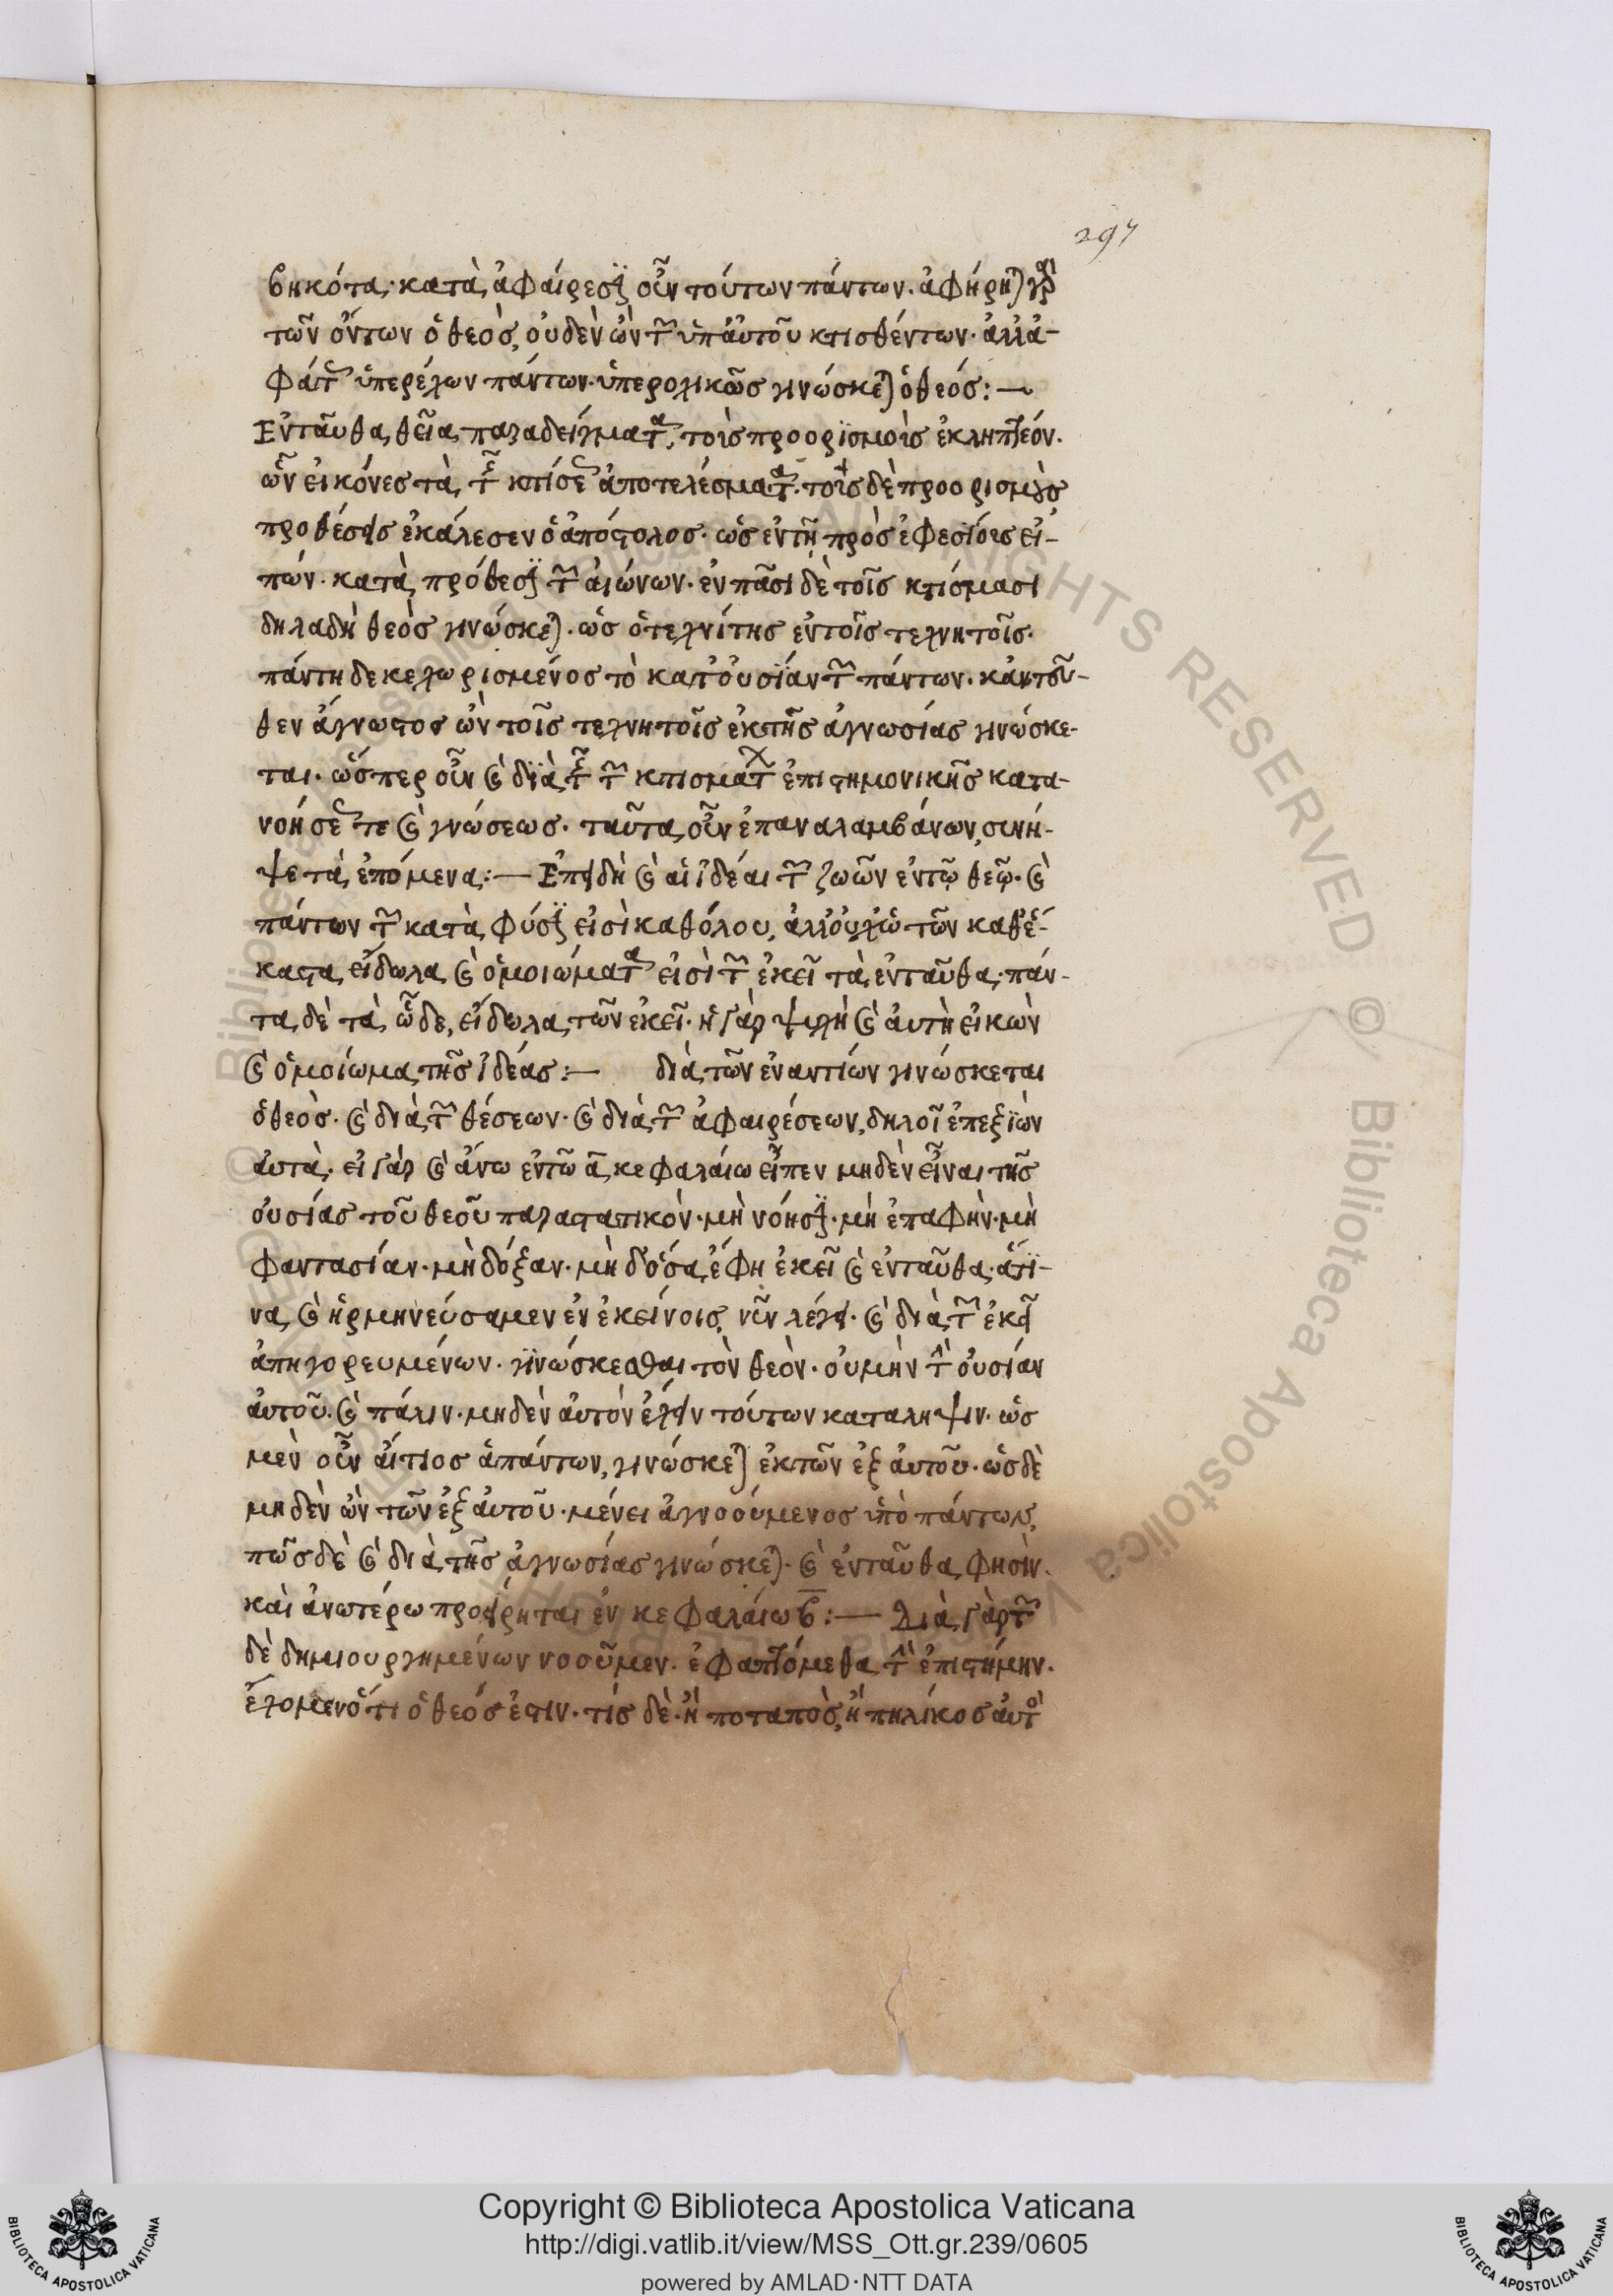 297
βηκότα· κατὰ ἀφαίρεσιν οὖν τούτων πάντων. ἀφήρηται γὰρ
τῶν ὄντων ὁ θεὸς, οὐδὲν ὢν τῶν ὑπ' αὐτοῦ κτισθέντων· ἀλλὰ
πάντων ὑπερέχων πάντων· ὑπεροχικῶς γινώσκεται ὁ θεός: —
Ἐνταῦθα θεῖα παραδείγματα, τοῖς προορισμοῖς ἐκληπτέον.
ὧν εἰκόνες τὰ τῆς κτίσεως ἀποτελέσματα· τοὺς δὲ προορισμοὺς
προθέσεις ἐκάλεσεν ὁ ἀπόστολος· ὡς ἐν τῇ πρὸς ἐφεσίους εἰ-
πών· κατὰ πρόθεσιν τῶν αἰώνων· ἐν πᾶσι δὲ τοῖς κτίσμασι
δηλαδὴ θεὸς γινώσκεται· ὡς ὁ τεχνίτης ἐν τοῖς τεχνητοῖς·
πάντη δὲ κεχωρισμένος τὸ κατ' οὐσίαν τῶν πάντων. κἀντεῦ-
θεν ἄγνωστος ὢν τοῖς τεχνητοῖς ἐκ τῆς ἀγνωσίας γινώσκε-
ται· ὥσπερ οὖν καὶ διὰ τῆς τῶν κτισμάτων ἐπιστημονικῆς κατα-
νοήσεώς τε καὶ γνώσεως· ταῦτα οὖν ἐπαναλαμβάνων, συνῆ-
ψε τὰ ἑπόμενα: — Ἐπειδὴ καὶ αἱ ἰδέαι τῶν ζώων ἐν τῷ θεῷ· καὶ
πάντων τῶν κατὰ φύσιν εἰσὶ καθόλου, ἀλλ' οὐχὶ τῶν καθ' ἕ-
καστα εἴδωλα καὶ ὁμοιώματα εἰσὶ τῶν ἐκεῖ τὰ ἐνταῦθα· πάν-
τα δὲ τὰ ὧδε, εἴδωλα τῶν ἐκεῖ· ἡ γὰρ ψυχὴ καὶ αὐτὴ εἰκὼν
καὶ ὁμοίωμα τῆς ἰδέας: — διὰ τῶν ἐναντίων γινώσκεται
ὁ θεὸς· καὶ διὰ τῶν θέσεων· καὶ διὰ τῶν ἀφαιρέσεων, δηλοῖ ἐπεξιὼν
αὐτὰ· εἰ γὰρ καὶ ἄνω ἐν τῶ α κεφαλαίω εἶπεν μηδὲν εἶναι τῆς
οὐσίας τοῦ θεοῦ παραστατικὸν· μὴ νόησιν· μὴ ἐπαφὴν· μὴ
φαντασίαν· μὴ δόξαν· μὴ δ' ὅσα ἔφη ἐκεῖ καὶ ἐνταῦθα· ἅτι-
να καὶ ἡρμηνεύσαμεν ἐν ἐκείνοις, νῦν λέγει· καὶ διὰ τῶν ἐκεῖ
ἀπηγορευμένων· γινώσκεσθαι τὸν θεὸν· οὐ μὴν τὴν οὐσίαν
αὐτοῦ. καὶ πάλιν· μηδὲν αὐτὸν ἔχειν τούτων καταληψιν· ὡς
μὲν οὖν αἴτιος ἁπάντων, γινώσκεται ἐκ τῶν ἐξ αὐτοῦ· ὡς δὲ
μηδὲν ὢν τῶν ἐξ αὐτοῦ· μένει ἀγνοούμενος ὑπὸ πάντων,
πῶς δὲ καὶ διὰ τῆς ἀγνωσίας γινώσκεται· καὶ ἐνταῦθα φησὶν.
καὶ ἀνωτέρω προείρηται ἐν κεφαλαίω β: — Διὰ γὰρ τῶν
δὲ δημιουργημένων νοοῦμεν· ἐφαπτόμεθα τὴν ἐπιστήμην.
ἔχομεν ὅτι ὁ θεός ἐστιν· τίς δὲ· ἢ ποταπὸς, ἢ πηλίκος αὐτὸ
Copyright © Biblioteca Apostolica Vaticana
http://digi.vatlib.it/view/MSS_Ott.gr.239/0605
powered by AMLAD·NTT DATA